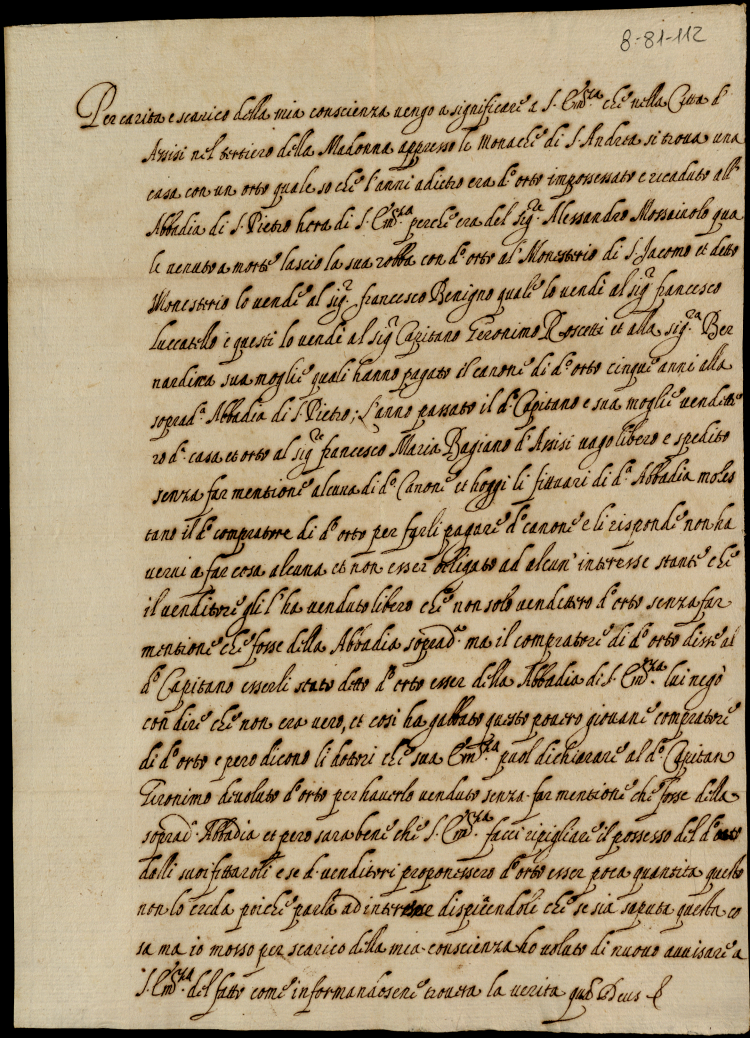 8-81-112
Per carita e scarico della mia conscienza uengo a significare a S. Em.za che nella Citta d'
Assisi nel tertiero della Madonna appresso le Monache di S. Andrea si troua una
casa con un orto quale so che l'anni adietro era d.o orto impossessato e ricaduto all'
Abbadia di S. Pietro hora di S. Em.za perche era del sig.re Alessandro qua
le uenuto a morte lascio la sua robba con d.o orto al Monesterio di S. Jacomo et detto
Monesterio lo vendé al sig.r francesco Benigno quale lo vendi al sig.r francesco
luccatello e questi lo vendi al sig.r Capitano Geronimo Roscetti et alla sig.ra Ber
nardina sua moglie quali hanno pagato il canone di d.o orto cinque anni alla
soprad.a Abbadia di S. Pietro; L'anno passato il d.o Capitano e sua moglie vendette
ro d.a casa et orto al sig.re francesco Maria Bagiano d'Assisi uago libero e spedito
senza far mentione alcuna di d.o Canone et hoggi li fittuari di d.a Abbadia moles
tano il d.o compratore di d.o orto per farli pagare d.o canone e li risponde non ha
uerui a far cosa alcuna et non esser obligato ad alcun' interesse stante che
il venditore gli l'ha venduto libero che non solo vendettero d.o orto senza far
mentione che fosse della Abbadia soprad.a ma il compratore di d.o orto disse al
d.o Capitano esserli stato detto d.o orto esser della Abbadia di S. Em.za lui negò
con dire che non era uero, et cosi ha gabbato questo pouero giouane compratore
di d.o orto e pero dicono li dottori che sua Em.za puol dichiarare al d.o Capitan
Geronimo deuoluto d.o orto per hauerlo venduto senza far mentione che fosse della
soprad.a Abbadia et pero sara bene che S. Em.za facci ripigliare il possesso del d.o orto
dalli suoi fittaroli e se d. venditori proponessero d.o orto esser poca quantita questo
non lo creda poiche parla ad interesse dispicendoli che se sia saputa questa co
sa ma io mosso per scarico della mia conscienza ho uoluto di nuouo auuisare a
S. Em.za del fatto come informandosene trouera la uerita Deus